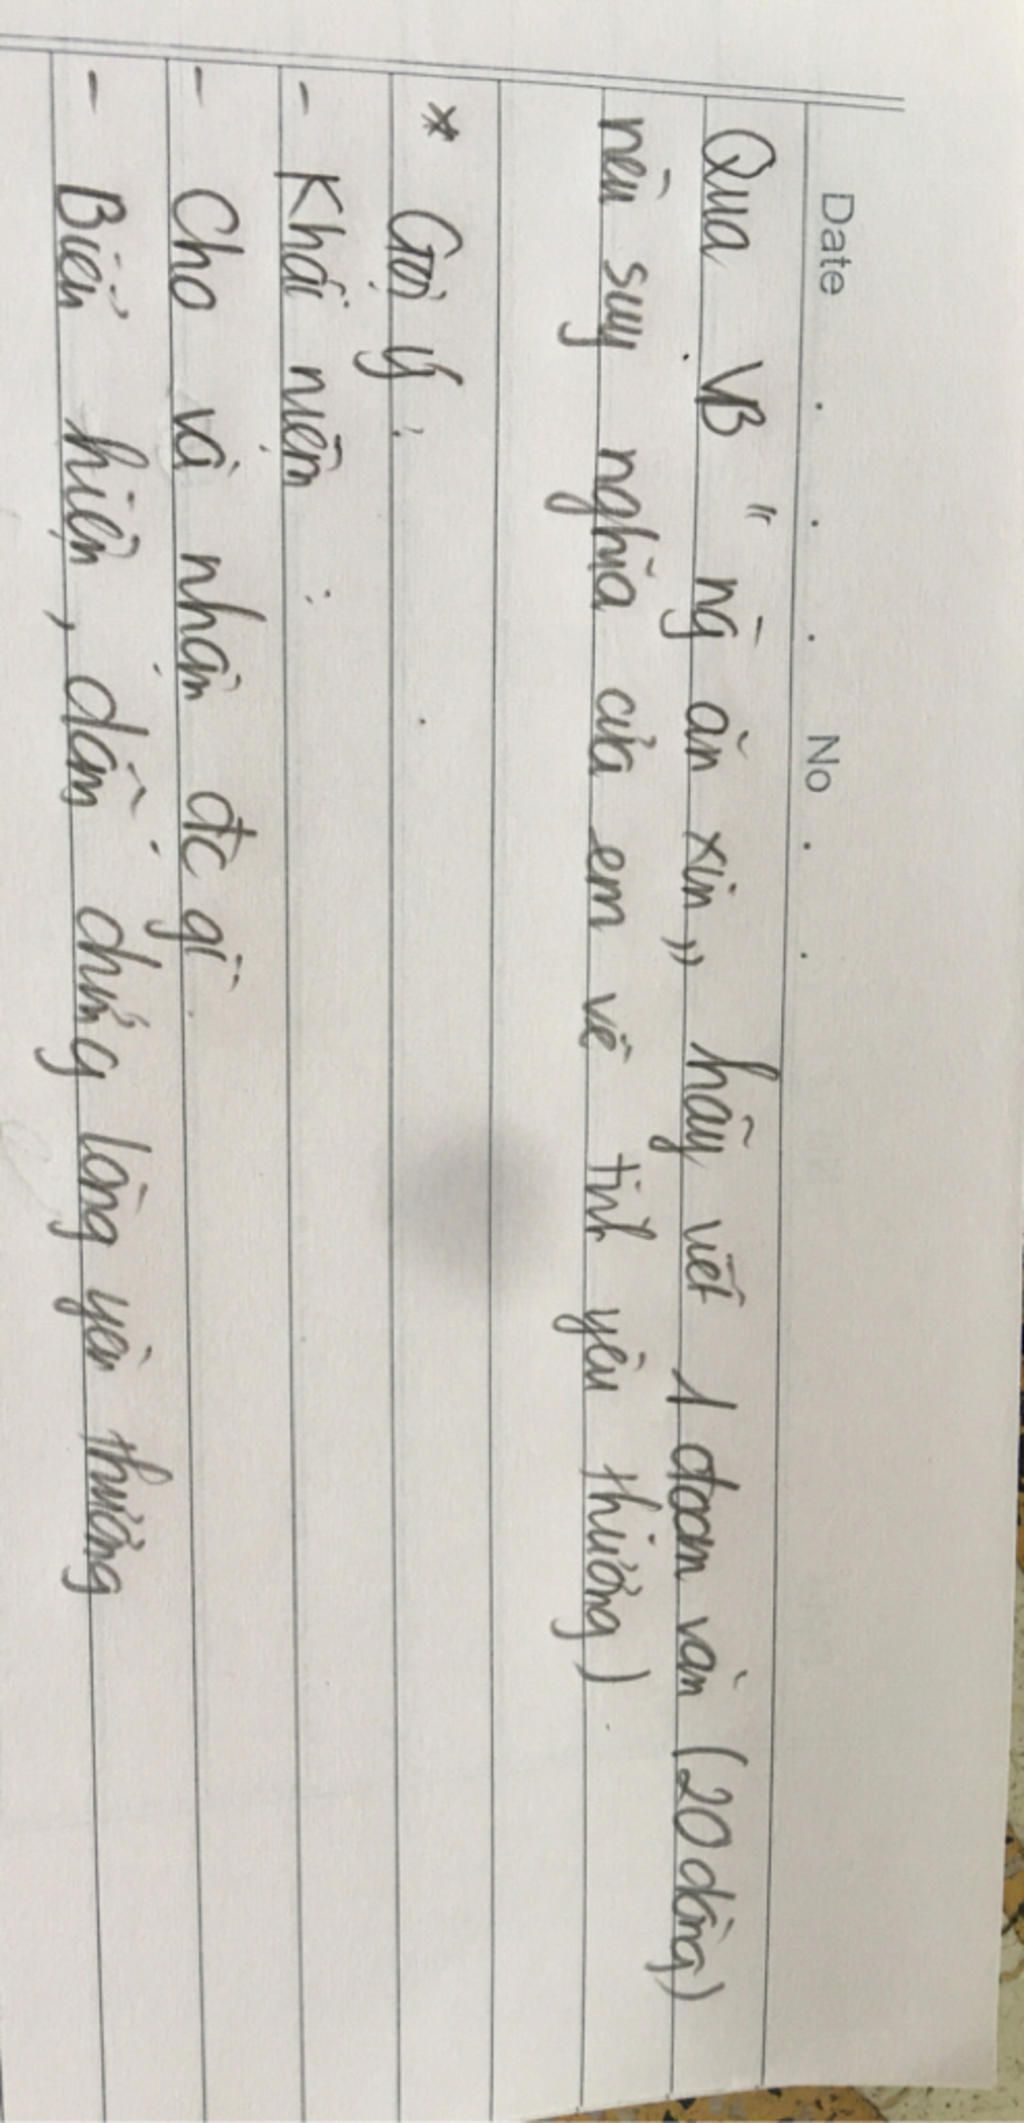 Date No
Qua VB " ng` ăn xin" hãy viết 1 đoạn văn (20 dòng)
nêu suy nghĩa của em về tình yêu thương)
* Gợi ý:
- Khái niệm :
- Cho và nhận đc gì
- Biểu hiện, dẫn chứng lòng yêu thương